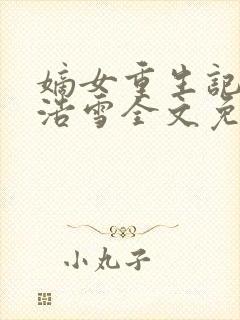 嫡女重生記
浩雪全文免
小丸子